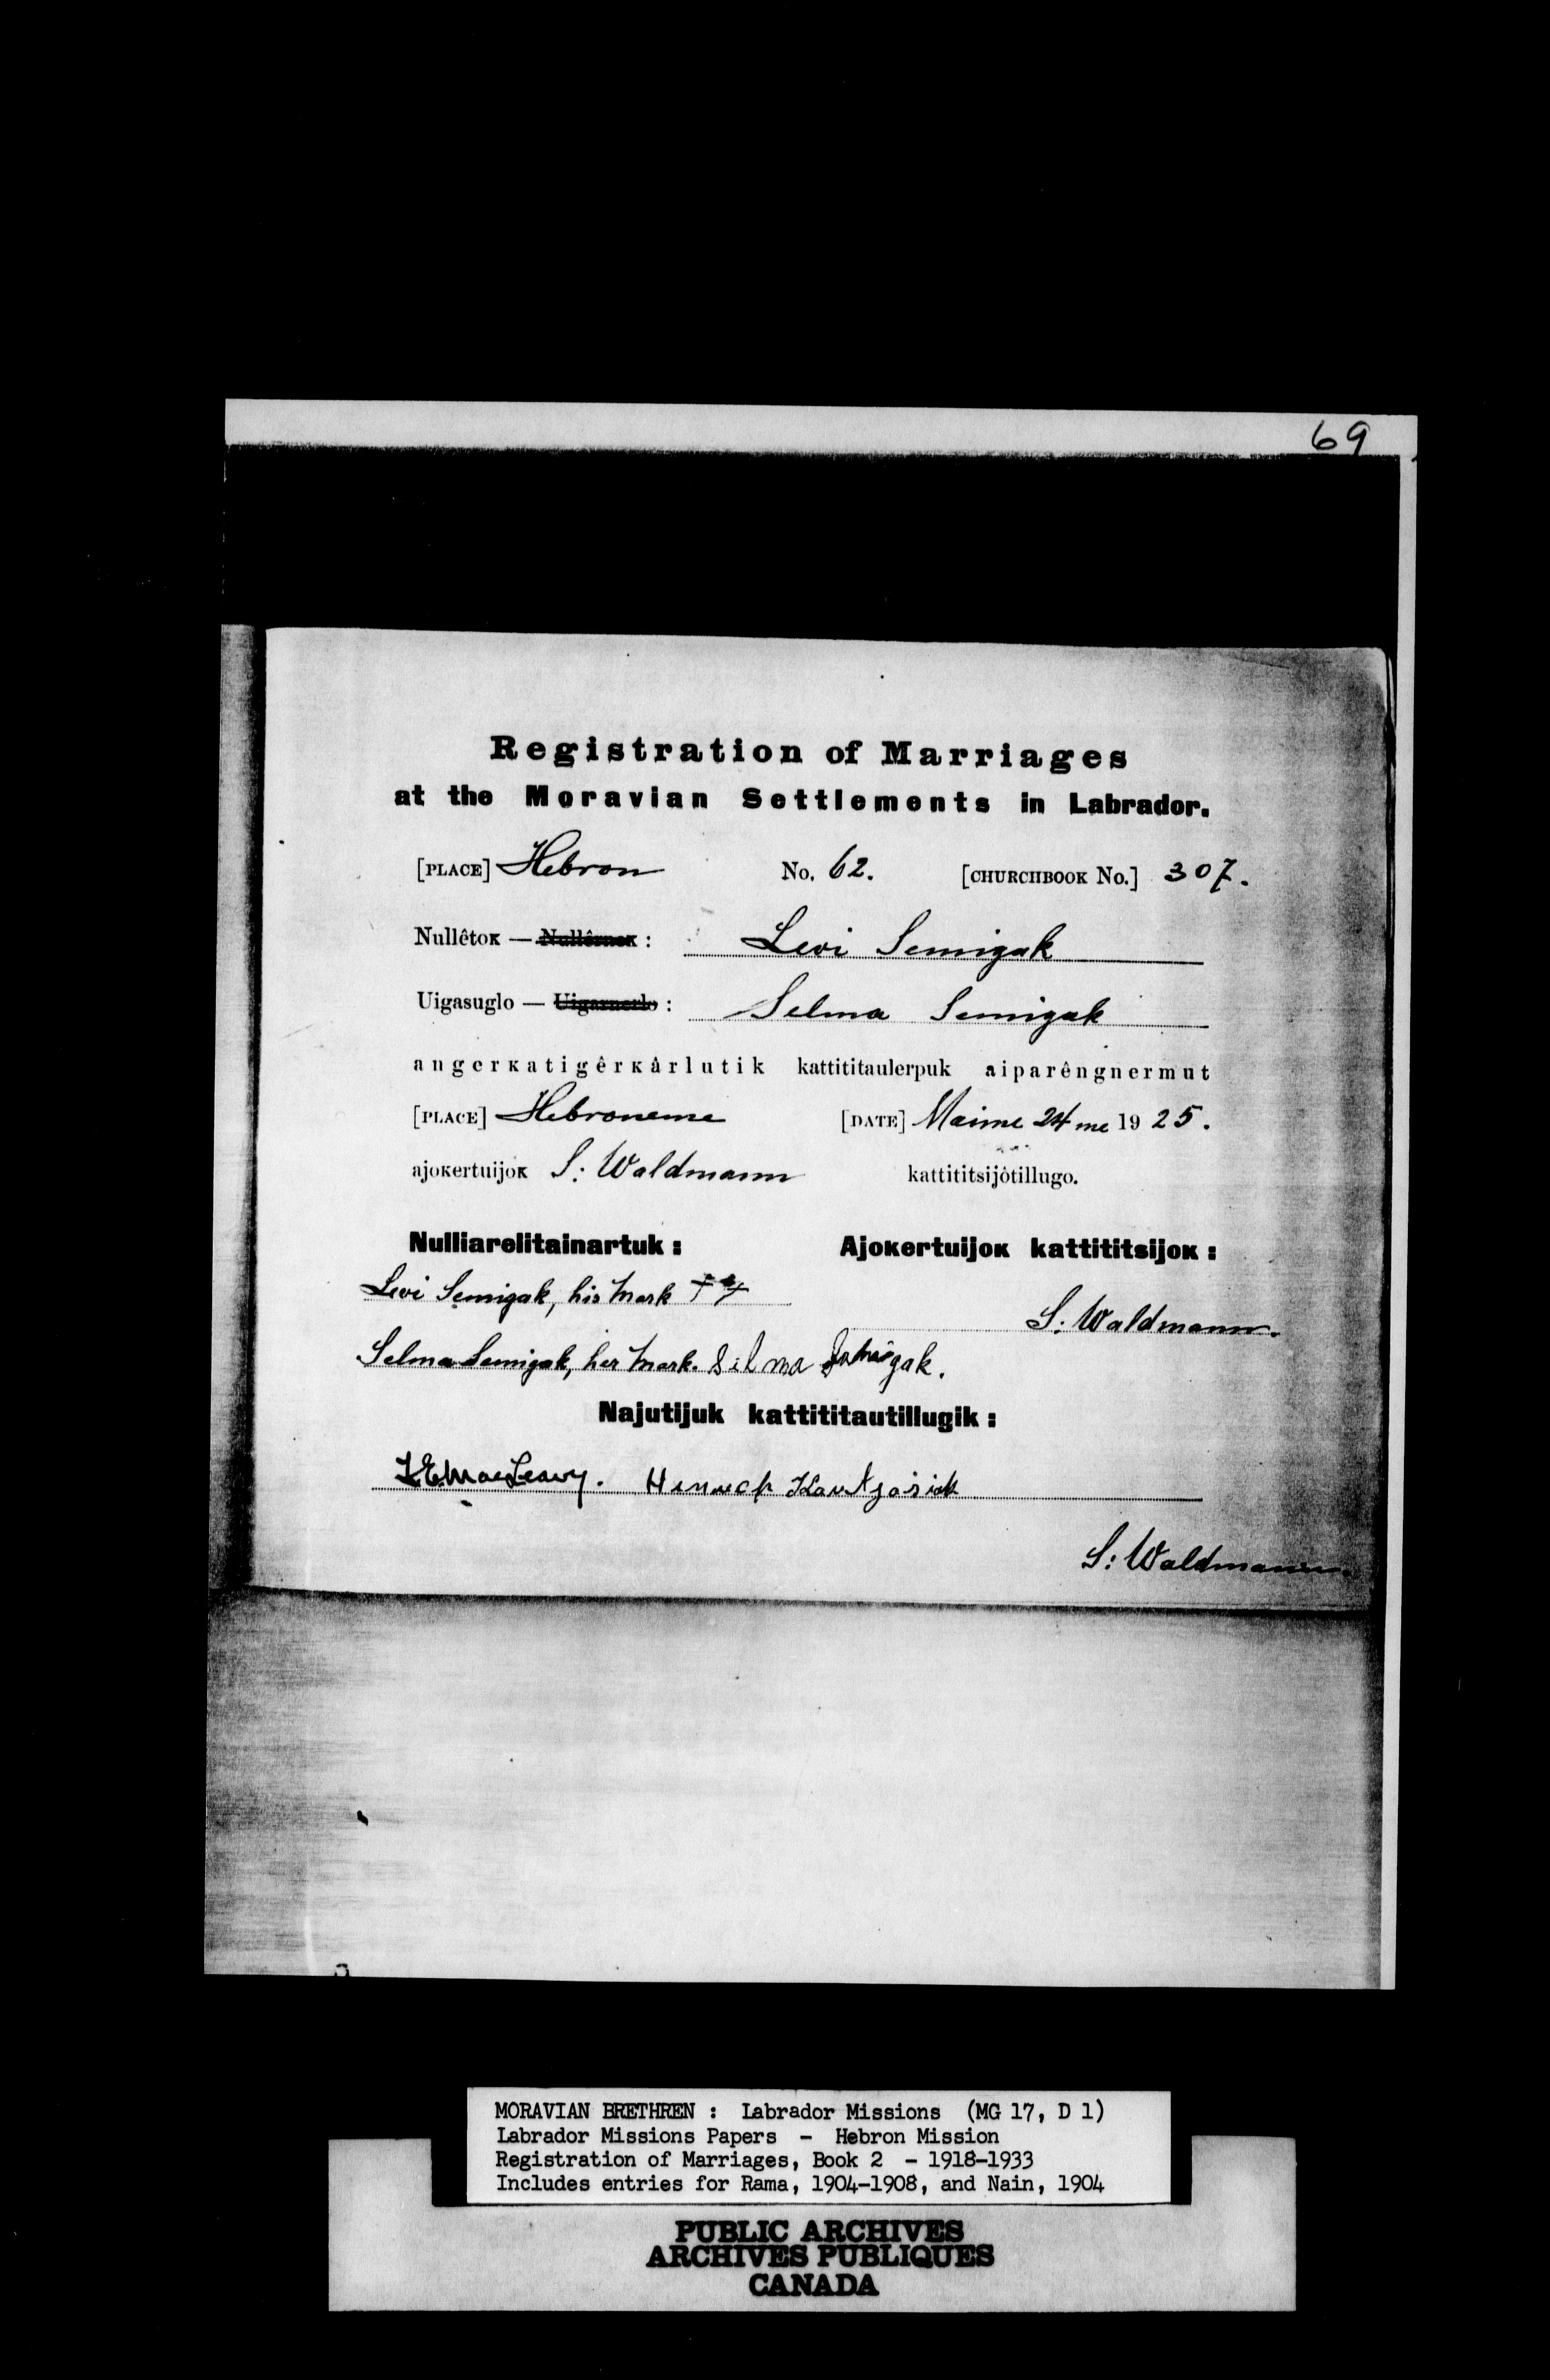 69
Registration of Marriages
at the Moravian Settlements in Labrador.
[PLACE] Hebron No. 62. [CHURCHBOOK No.] 307.
Nullêtoĸ — Nullêrneĸ : Levi Semigak
Uigasuglo — Uigarnerlo : Selma Semigak
angerĸatigêrĸârlutik kattititaulerpuk aiparêngnermut
[PLACE] Hebroneme [DATE] Maime 24 me 1925.
ajoĸertuijoĸ S: Waldmann kattititsijôtillugo.
Nulliarelitainartuk : Ajoĸertuijoĸ kattititsijoĸ :
Levi Semigak, his mark ++
S: Waldmann.
Selma Semigak, her mark. Silma gak.
Najutijuk kattititautillugik :
S: Waldmann.
MORAVIAN BRETHREN : Labrador Missions (MG 17, D 1)
Labrador Missions Papers – Hebron Mission
Registration of Marriages, Book 2 – 1918–1933
Includes entries for Rama, 1904–1908, and Nain, 1904
PUBLIC ARCHIVES
ARCHIVES PUBLIQUES
CANADA